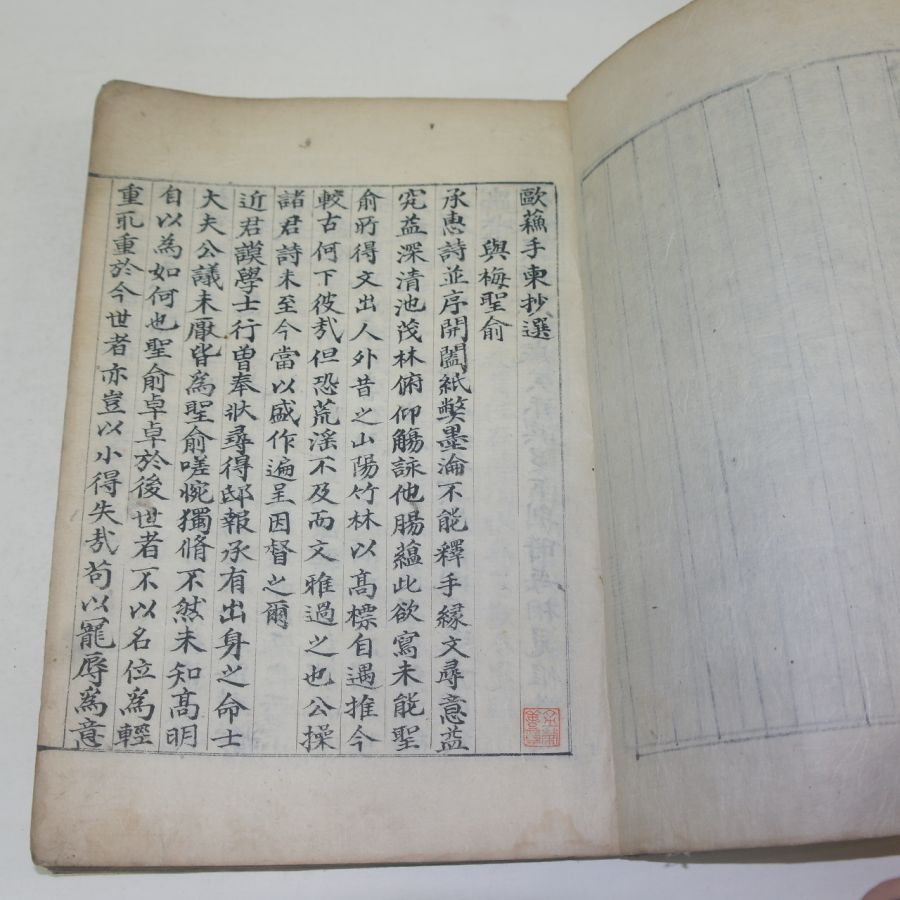 歐蘓手柬抄選
與梅聖俞
承惠詩並序開闔紙弊墨淪不能釋手縁文尋意益
究益深清池茂林俯仰觴詠他膓蘊此欲寫未能聖
俞所得文出人外昔之山陽竹林以髙標自遇推今
較古何下彼㢤但恐荒淫不及而文雅過之也公操
諸君詩未至今當以盛作遍呈因督之爾
近君謨學士行曽奉狀尋得邸報承有出身之命士
大夫公議未厭皆為聖俞嗟惋獨脩不然未知髙明
自以為如何也聖俞卓卓於後世者不以名位為輕
重所重於今世者亦豈以小得失㢤苟以寵辱為意